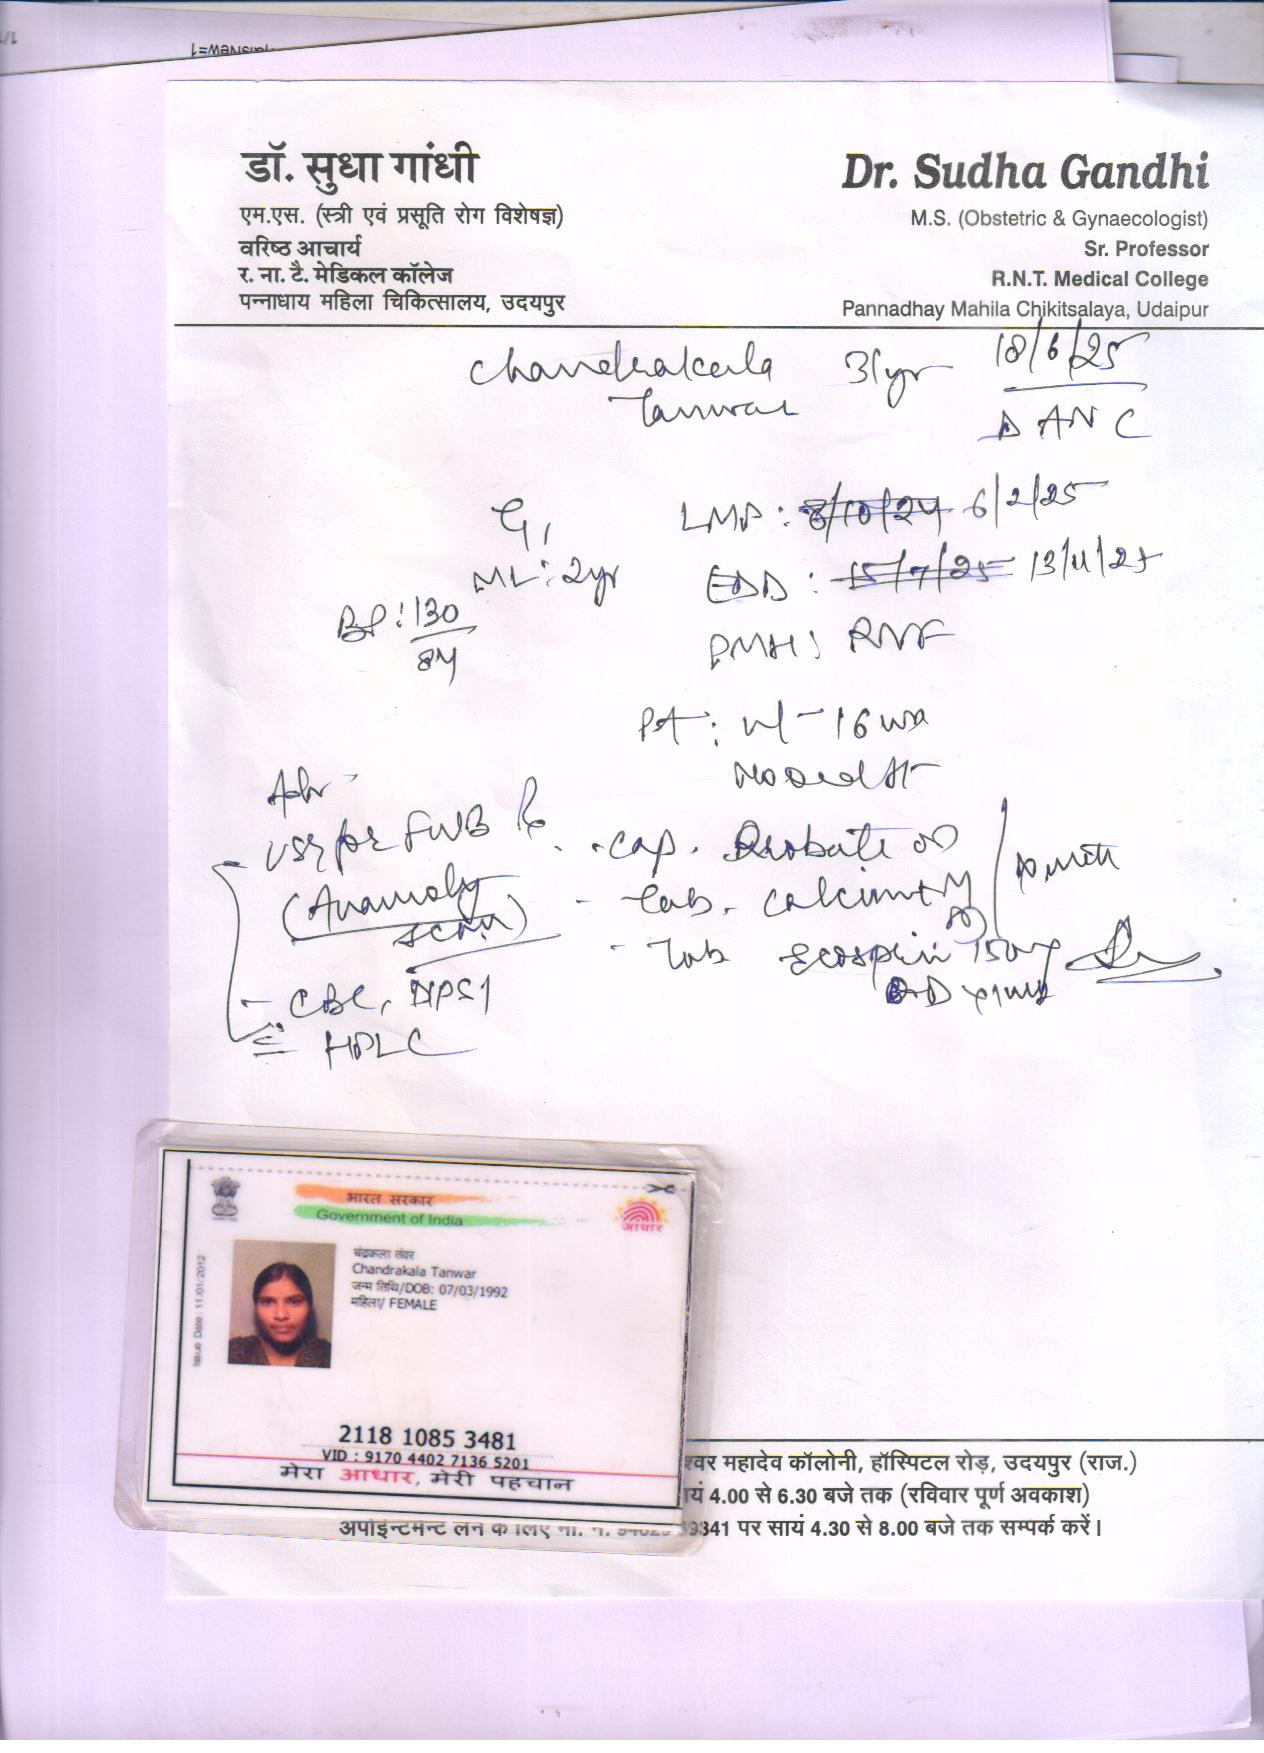 डॉ. सुधा गांधी
एम.एस. (स्त्री एवं प्रसूति रोग विशेषज्ञ)
वरिष्ठ आचार्य
र. ना. टै. मेडिकल कॉलेज
पन्नाधाय महिला चिकित्सालय, उदयपुर
Dr. Sudha Gandhi
M.S. (Obstetric & Gynaecologist)
Sr. Professor
R.N.T. Medical College
Pannadhay Mahila Chikitsalaya, Udaipur
Chandrakala 31yr 18/6/25
Tanwar
ANC
G1 LMP: 8/10/24 6/2/25
ML: 2yr EDD: 15/7/25 13/11/25
BP: 130/84
PMH: RNF
PA: 16
Adv
USG for FWB
(Anamoly scan)
- CBC,
HPLC
- cap. OD
- Tab. calcium
- Tab Ecosprin 150mg
OD
भारत सरकार
Government of India
आधार
Issue Date: 11/01/2012
चंद्रकला तंवर
Chandrakala Tanwar
जन्म तिथि/DOB: 07/03/1992
महिला/ FEMALE
2118 1085 3481
VID : 9170 4402 7136 5201
मेरा आधार, मेरी पहचान
महादेव कॉलोनी, हॉस्पिटल रोड़, उदयपुर (राज.)
4.00 से 6.30 बजे तक (रविवार पूर्ण अवकाश)
अपॉईन्टमेन्ट लेने के लिए मो. नं. 341 पर सायं 4.30 से 8.00 बजे तक सम्पर्क करें।